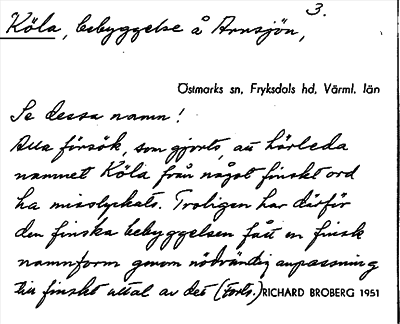 3.
Köla, bebyggelse å Arnsjön,
Östmarks sn, Fryksdals hd, Värml. län
Se dessa namn!
Alla försök, som gjorts, att härleda
namnet Köla från något finskt ord
ha misslyckats. Troligen har därför
den finska bebyggelsen fått en finsk
namnform genom nödvändig anpassning
till finskt uttal av det (forts.) RICHARD BROBERG 1951